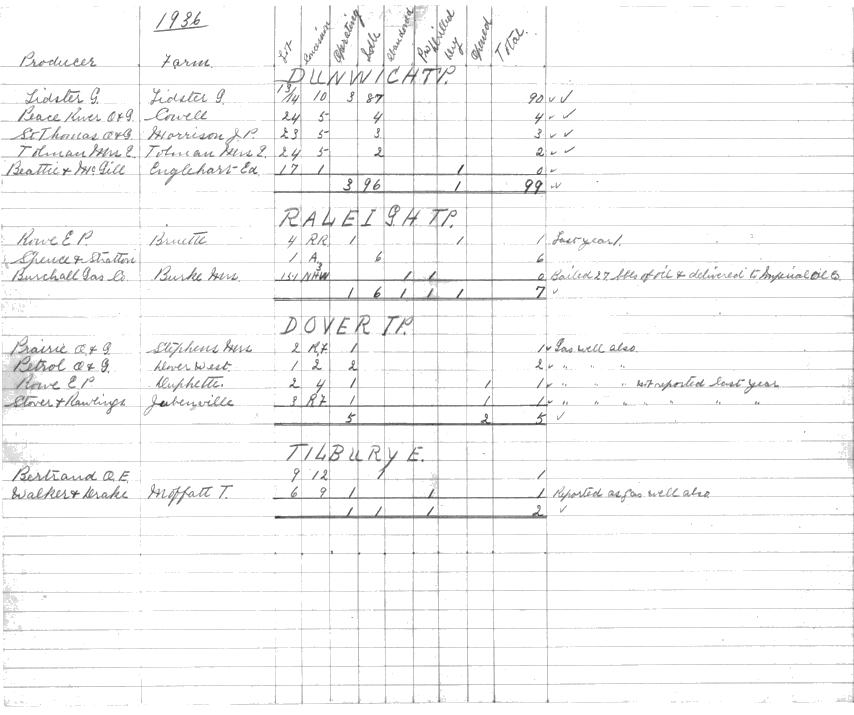 1936
Producer Farm Lot Concession Operating Idle Abandoned Prod Drilled Dry Opened Total
DUNWICH TP.
Lidster G. Lidster G. 13/14 10 3 87 90 ✓ ✓
Peace River O & G. Cowell 24 5 4 4 ✓ ✓
St Thomas O & G. Morrison J.P. 23 5 3 3 ✓ ✓
Tolman Mrs E. Tolman Mrs E. 24 5 2 2 ✓ ✓
Beattie & McGill Englehart Ed. 17 1 1 0 ✓
3 96 1 99 ✓
RALEIGH TP.
Rowe E P. 4 RR 1 1 1 Last year 1.
Spence & Stratton 1 A 6 6
Burchall Gas Co. Burke Mrs. 151 3 NHW 1 1 0 Bailed 27 bbls of oil & delivered to Imperial Oil Co
1 6 1 1 1 7 ✓
DOVER TP.
Prairie O & G Stephens Mrs 2 R.F 1 1 ✓ Gas well also
Petrol O & G Dover West. 1 2 2 2 ✓ " " "
Rowe E P. 2 4 1 1 1 ✓ " " " not reported last year
Stover & Rawlings Jubenville 3 R F 1 1 1 ✓ " " " " " " "
5 2 5 ✓
TILBURY E.
Bertrand O. E. 9 12 1 1
Walker & Drake Moffatt T. 6 9 1 1 1 Reported as gas well also
1 1 1 2 ✓